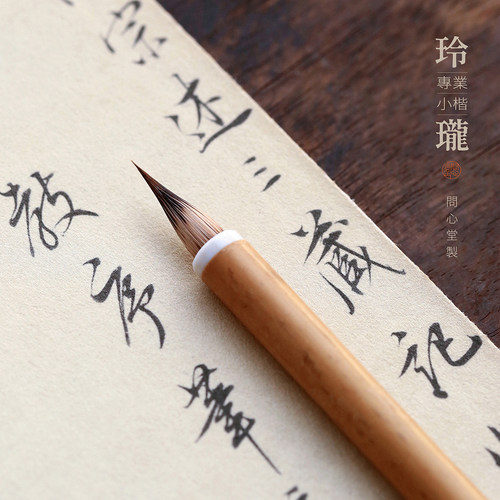 玲
專業
小楷
瓏
問心堂製
宗述三藏記
教序筆